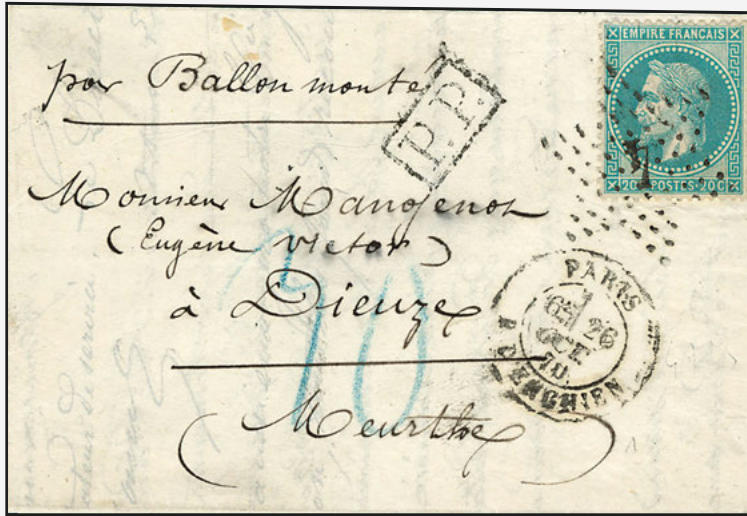 EMPIRE FRANÇAIS
20C POSTES 20C
par Ballon monté
P.P.
Monsieur Mangenot
(Eugène Victor)
à Dieuze
(Meurthe)
30
PARIS
6E 26
OCT.
70
R. D'ENGHIEN